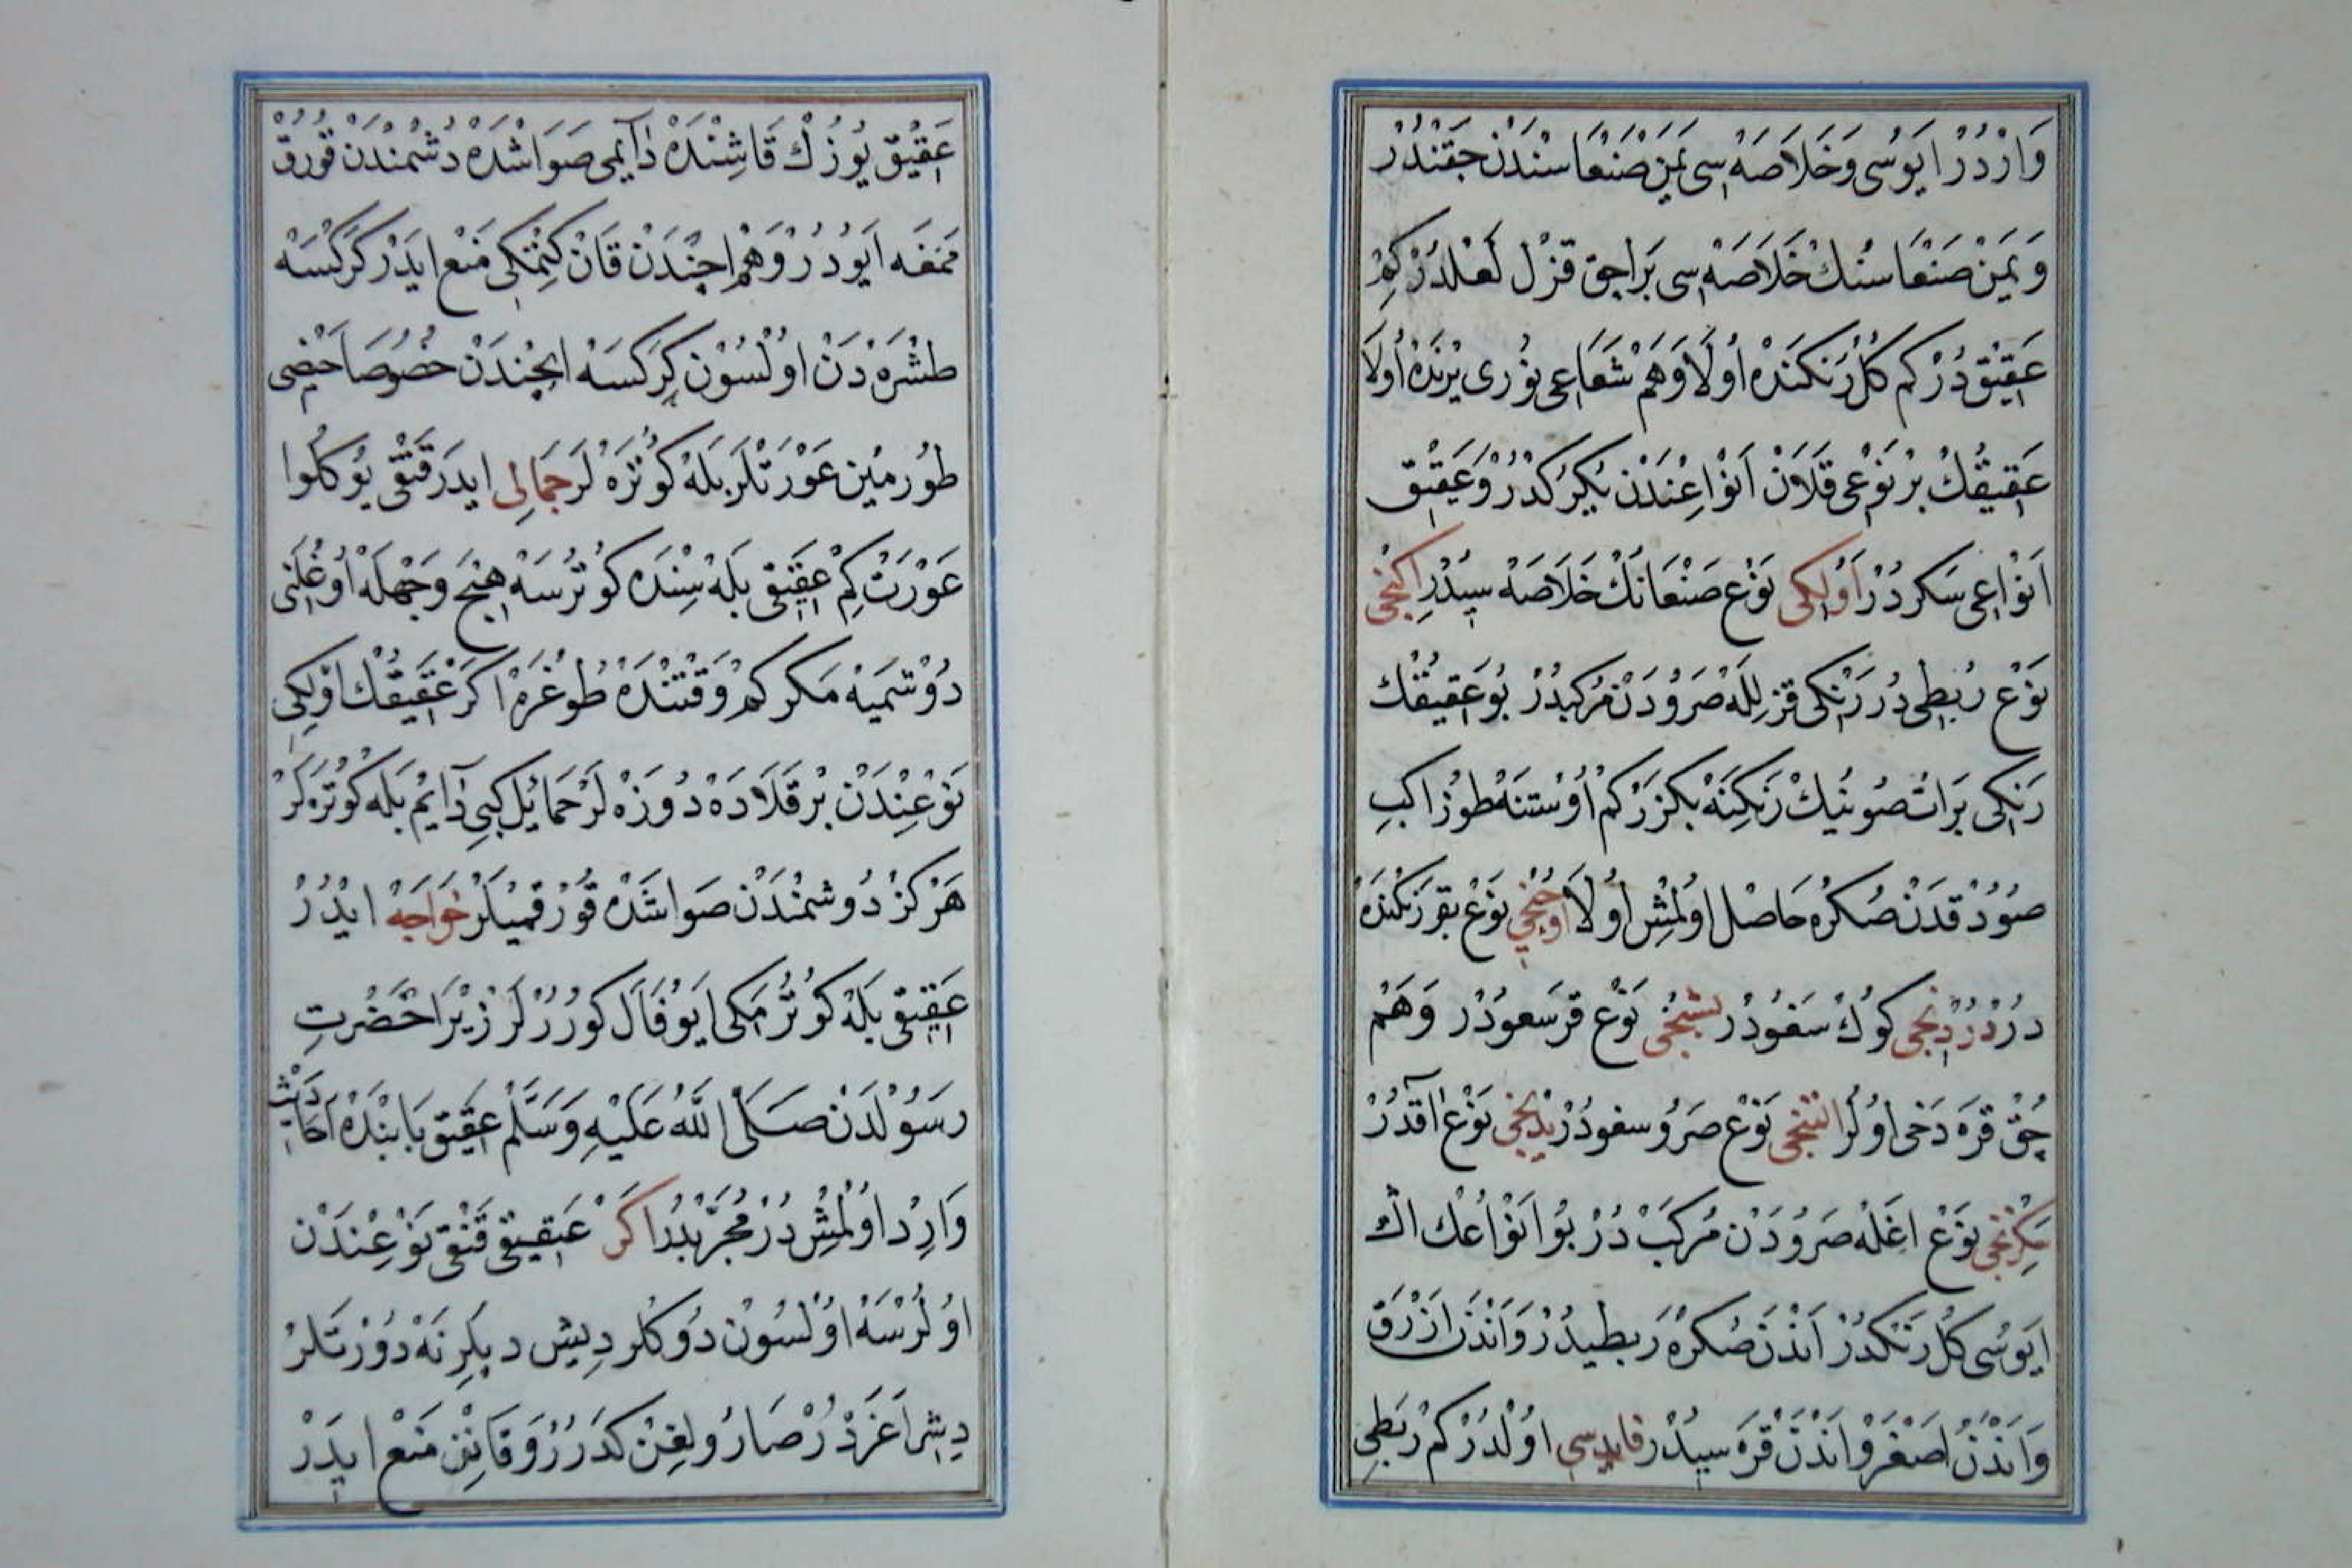 وَارْدُرْ اَيُوسِى وَخَلَاصَه سِى يَمَنْ صَنْعَاسَنْدَنْ چِقَنْدُرْ
وَيَمَنْ صَنْعَا سنُكْ خَلَاصَه سِى بَرَاجِق قِزِلْ لَعْلدُرْ كِمْ
عَقِيقْدُرْكِم كُلْ رَنكَنْدَه اُولَا وَهَمْ شُعَاعِى نُورِى يِرنْدَه اُولَا
عَقِيقُكْ بِرْ نَوْعِى قَلَانْ اَنْوَاعِنْدَنْ يِكْرَكْدُرْ وَعَقِيق
اَنْوَاعِى سَكِزدُرْ اَوَّلكِى نَوْع صَنْعَانُكْ خَلَاصَه سِيدُرْ اِكنْجِى
نَوْع رُبطِى دُرْ رَنْكِى قِزِللَه صَرُودَنْ مُركَبدُرْ بُو عَقِيقُكْ
رَنْكِى بَرَاتْ صُونِيكْ رَنكِنَه بَكزَرْ كِمْ اُوسْتِنَه طُوزْ اَكِبِ
صُودُقدَنْ صُكْرَه حَاصْل اُولْمِش اُولَا اُوچُنْجِى نَوْع بَقِرْ رَنْكنْدَه
دُرْ دُرْدِنْجِى كُوكْ سَفُودُرْ بَشِنْجِى نَوْع قَرَسَعودُرْ وَهَمْ
چِقْ قَرَه دَخِى اُولُرْ اَلْتِنْجِى نَوْع صَرُو سفودُرْ يَدِنْجِى نَوْع آقدُرْ
سَكِزنْجِى نَوْع اغله صَرُودَنْ مُركَبْ دُرْ بُو اَنْوَاعُكْ اَكْ
اَيُوسِى كُلْ رَنكدُرْ اَندَنْ صُكْرَه رَبطِيدُرْ وَاَنْدَنْ اَزْرَقْ
وَاَنْدَنْ اَصْفَرْ وَاَنْدَنْ قَرَه سِيدُرْ فَايدَسِى اُولْدُرْ كِمْ رَبَطِى
عَقِيقْ يُوزُكْ قَاشِنْدَه دَايمِى صَوَاشْدَه دُشْمنْدَنْ قُورُقْ
مَمغَه اَيُودُرْ وَهَمْ اِچِنْدَنْ قَانْ كِتْمَكِى مَنْع اِيدَرْ كَرَكْسَه
طَشْرَه دَنْ اُولْسُونْ كَرَكسَه اِيچِنْدَنْ خُصُوصًا حَيْضِى
طُورمَيِن عَوْرَتْلَرْ بَلَه كُوتُرَه لَرْ جَمَالِى اِيدَرْ قَنْقِى يُوكْلُوا
عَوْرَتْ كِمْ عَقِيقِى بَلَه سِنْدَه كُوتُرسَه هِيجْ وَجْهلَه اُوغْلَنِى
دُوشمَيَه مَكَر كِمْ وَقْتِنْدَه طُوغُرَه اَكَرْ عَقِيقُكْ اَوَّلكِى
نَوْعِنْدَنْ بِرْ قَلَادَه دُوزَه لَرْ حَمَائِل كِبِى دَايِمْ بَلَه كُوتُرَه لَرْ
هَرْكِزْ دُوشمَنْدَنْ صَوَاشَدَه قُورْقمَيَلَرْ خَوَاجَه اِيدُرْ
عَقِيقِى بَلَه كُوتُرْمَكِى اَيُو فَالْ كُورُرْلَرْ زِيرَا حَضْرَتِ
رَسُولْدَنْ صَلَّى اللّهُ عَلَيْهِ وَسَلَّمْ عَقِيقْ بَابِنْدَه اَحَادِيثْ
وَارِدْ اُولْمِشْ دُرْ مُجَرَّبدُرْ اَكَرْ عَقِيقِى قَنْقِى نَوْعِنْدَنْ
اُولُرْسَه اُولْسُونْ دُوكَلَر دِيشْ دِيپلِرِنَه دُورْتَلَرْ
دِيشْ اَغَرْدُرْ صَارُولِغِنْ كِدَرُرْ وَقَانِنْ مَنْع اِيدَرْ